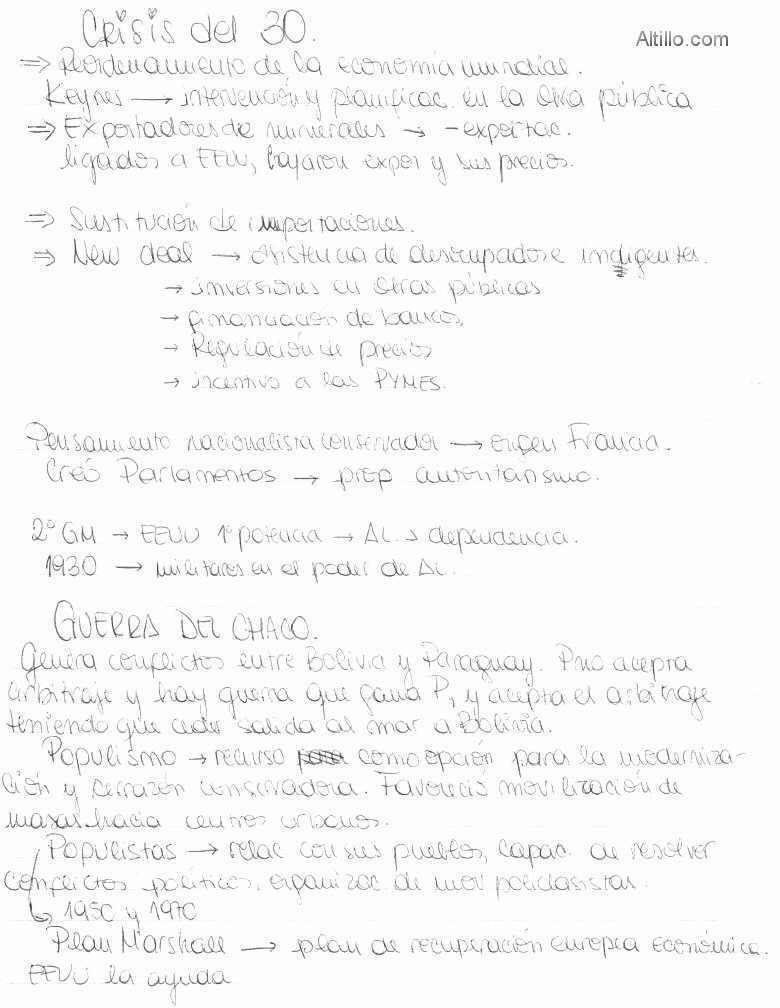 Crisis del 30.
Altillo.com
⇒ Reordenamiento de la economía mundial.
Keynes → intervención y planificac. en la obra pública
⇒ Exportadores de minerales → - exportac.
ligados a EEUU, bajaron expor y sus precios.
⇒ Sustitución de importaciones.
⇒ New deal → Asistencia de desocupados e indigentes.
→ inversiones en obras públicas
→ financiación de bancos,
→ Regulación de precios
→ incentivo a las PYMES.
Pensamiento nacionalista conservador → origen Francia.
Creó Parlamentos → prop autoritarismo.
2° GM → EEUU 1° potencia → AL → dependencia.
1930 → militares en el poder de AL.
GUERRA DEL CHACO.
Genera conflictos entre Bolivia y Paraguay. P no acepta
arbitraje y hay guerra que gana P, y acepta el arbitraje
teniendo que ceder salida al mar a Bolivia.
Populismo → recurso como opción para la moderniza-
ción y cerrazón conservadora. Favoreció movilización de
masas hacia centros urbanos.
Populistas → relac con sus pueblos, capac. de resolver
conflictos políticos, organizac. de mov policlasistas.
↳ 1950 y 1970
Plan Marshall → plan de recuperación europea económica.
EEUU la ayuda